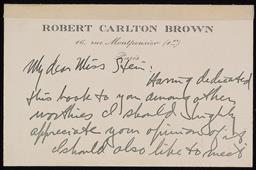 ROBERT CARLTON BROWN
16, rue Montpensier (1er)
Paris
My dear Miss Stein:
Having dedicated
this book to you among other
worthies I should highly
appreciate your opinion of it.
I should also like to meet